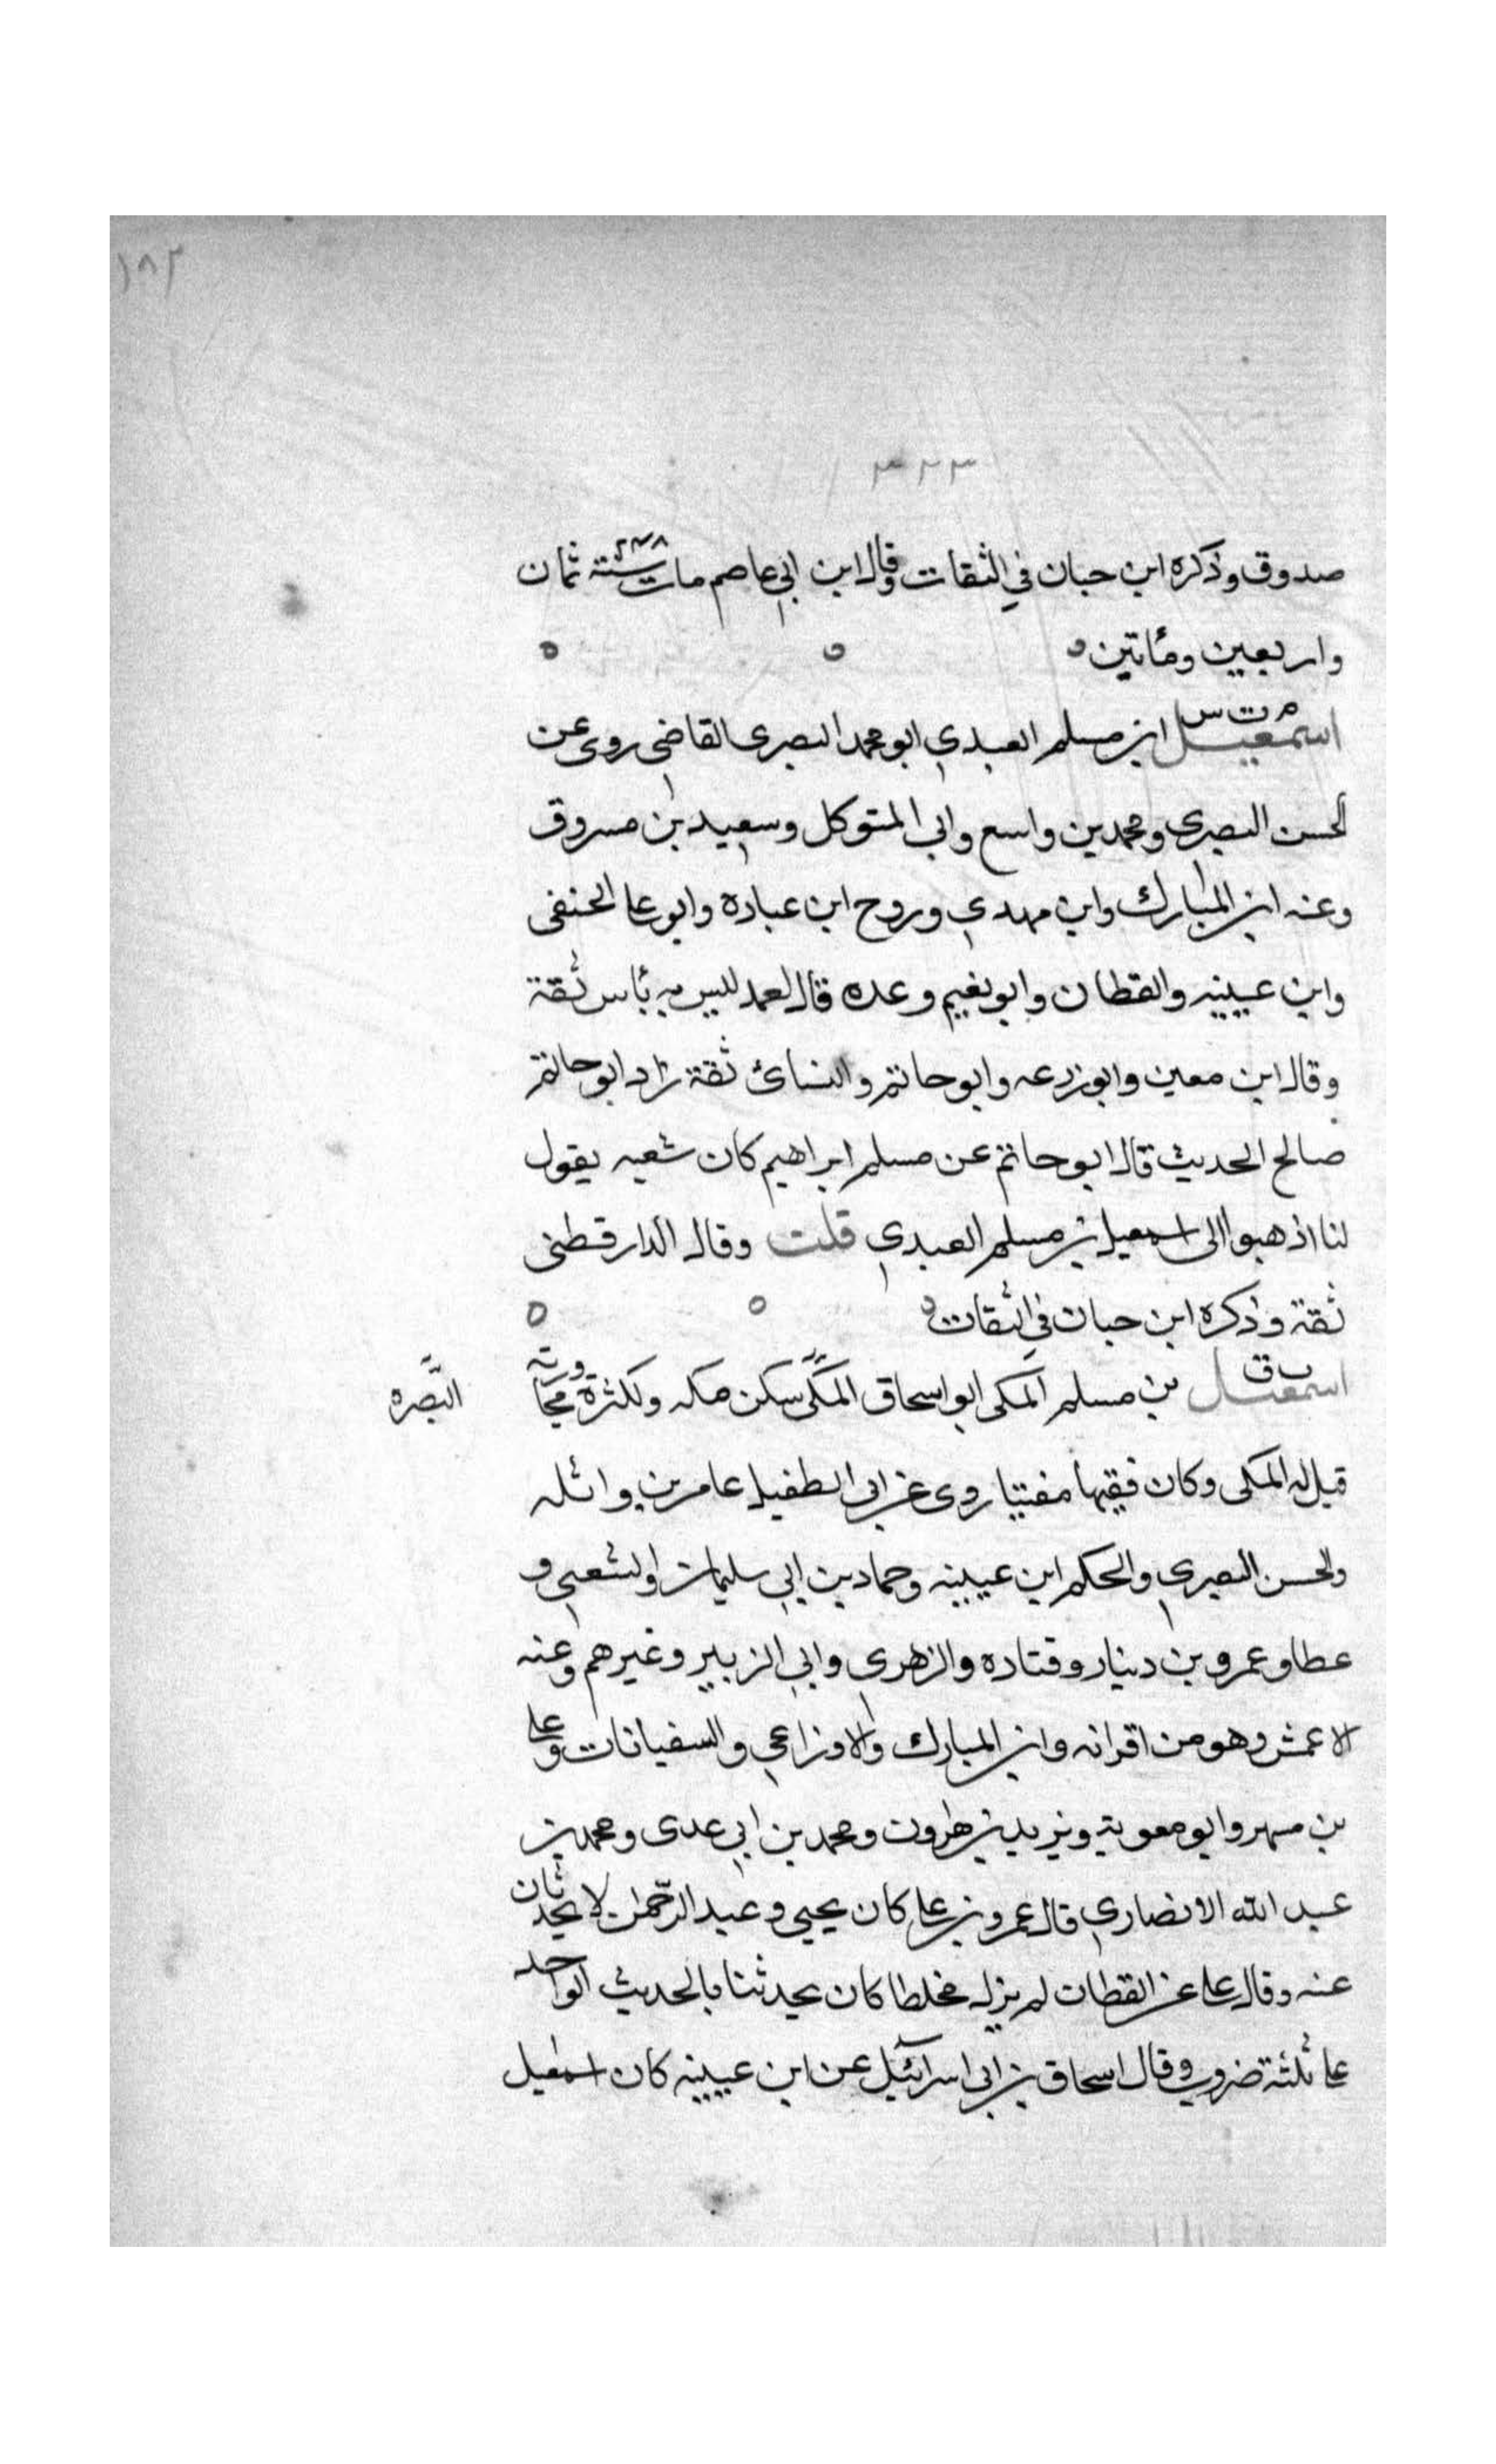 ١٨٢
٣٢٣
صدوق وذكره ابن حبان في الثقات وقال ابن ابي عاصم مات سنة ٢٤٨ ثمان
واربعين ومأتين ه ه ه
م ت س
اسمعيل ابن مسلم العبدي ابو محمد البصرى القاضي روى عن
الحسن البصرى ومحمد بن واسع وابي المتوكل وسعيد بن مسروق
وعنه ابن المبارك وابن مهدي وروح ابن عباده وابو عا الحنفى
وابن عيينه والقطان وابو نعيم وعده قال احمد ليس به بأس ثقة
وقال ابن معين وابو زرعه وابو حاتم والنسائ ثقة زاد ابو حاتم
صالح الحديث قال ابو حاتم عن مسلم ابراهيم كان شعبه يقول
لنا اذهبوا الى اسمعيل بن مسلم العبدي قلت وقال الدارقطنى
ثقة وذكره ابن حبان في الثقات ه ه ه
ت ق
اسمعيل بن مسلم المكى ابو اسحاق المكي سكن مكه ولكثرة مجاورته
البصره
قيل له المكى وكان فقيها مفتيا روى عن ابى الطفيل عامر بن واثله
والحسن البصري والحكم ابن عيينه وحماد بن ابي سليمان والشعبي و
عطا وعمرو بن دينار وقتاده والزهرى وابي الزبير وغيرهم وعنه
الاعمش وهو من اقرانه وابن المبارك والاوزاعي والسفيانان وعلى
بن مسهر وابو معوية ويزيد بن هارون ومحمد بن ابي عدى ومحمد بن
عبد الله الانصاري قال عمرو بن على كان يحيى وعبد الرحمن لا يحدثان
عنه وقال على عن القطان لم يزل مخلطا كان يحدثنا بالحديث الواحد
على ثلثة ضروب وقال اسحاق بن ابى اسرائيل عن ابن عيينه كان اسمعيل